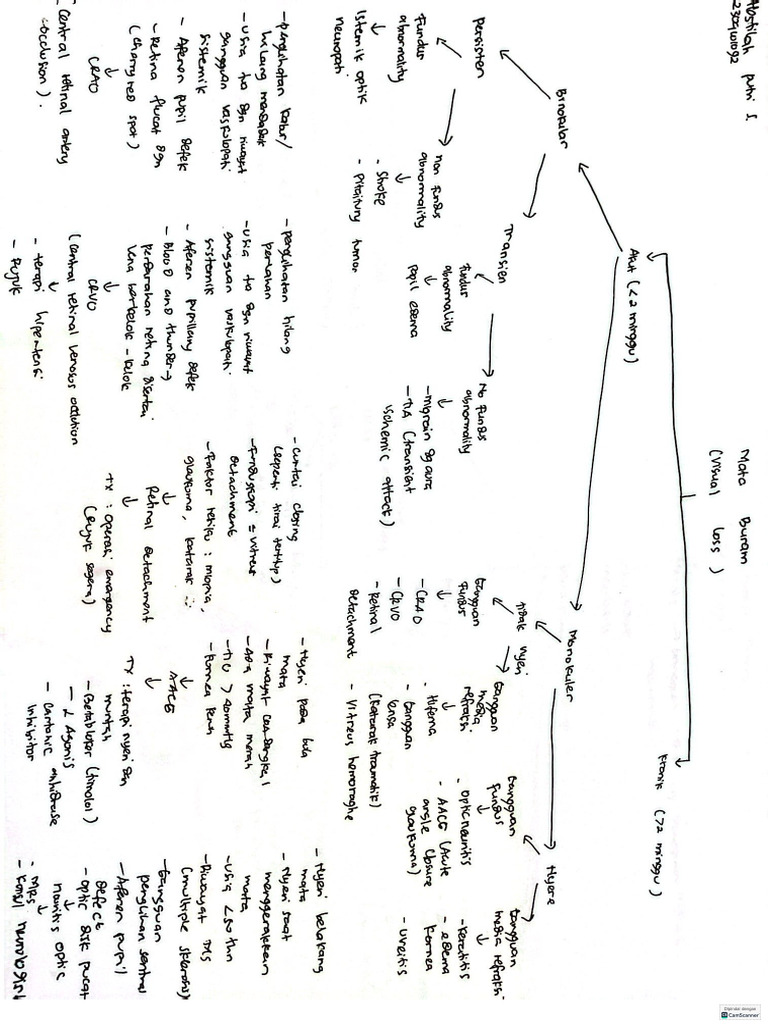 Mata Buram
(Visual loss)
Akut (<2 minggu)
Kronik (>2 minggu)
Binokular
Monokuler
Persisten
Transien
Tidak nyeri
Nyere
Fundus
abnormality
↓
Istemik optik
neuropati
non fundus
abnormality
↓
- Stroke
- Pituitary tumor
fundus
abnormality
↓
Papil edema
No fundus
abnormality
↓
- Migrain dg aura
- TIA (transient
ischemic attack)
Gangguan
fundus
↓
- CRAO
- CRVO
- Retinal
detachment
Gangguan
media
refraksi
↓
- Hifema
- Gangguan
lensa
(Katarak traumatik)
- Vitreus hemoraghe
Gangguan
fundus
↓
- Optic neuritis
- AACG (Acute
angle closure
glaukoma)
Gangguan
media refraksi
↓
- Keratitis
- edema
kornea
- Uveitis
- penglihatan kabur/
hilang mendadak
- usia tua dgn riwayat
gangguan vaskulopati
sistemik
- Aferen pupil defek
- Retina pucat dgn
(cherry red spot)
↓
CRAO
(Central retinal artery
occlusion).
- penglihatan hilang
perlahan
- usia tua dgn riwayat
gangguan vaskulopati.
sistemik
- Aferen pupillary defek
- Blood and thunder →
perdarahan retina disertai
vena berkelok-kelok
↓
CRVO
(Central retinal venosus occlution
↓
- terapi hipertensi
- Rujuk
- Curtai closing
(seperti tirai tertutup)
- Funduskopi = vitreus
detachment
- Faktor resiko : miopia,
glaukoma, katarak
↓
Retinal detachment
↓
Tx : operasi emergency
(Rujuk segera)
- Nyeri pada bola
mata
- Ada mata merah
- Kornea keruh
↓
AACG
↓
Tx : terapi nyeri dan
muntah
- Betabloker (timolol)
- α Agonis
- Carbonic anhidrase
inhibitor
- Nyeri belakang
mata
- Nyeri saat
menggerakkan
mata
- usia <50 thn
- Riwayat MS
(multiple sklerosis)
- Gangguan
penglihatan sentral
- Aferen pupil
defect
- optic disk pucat
↓
neuritis optic
↓
- MRS
- Konsul neurologist
Dipindai dengan
CamScanner